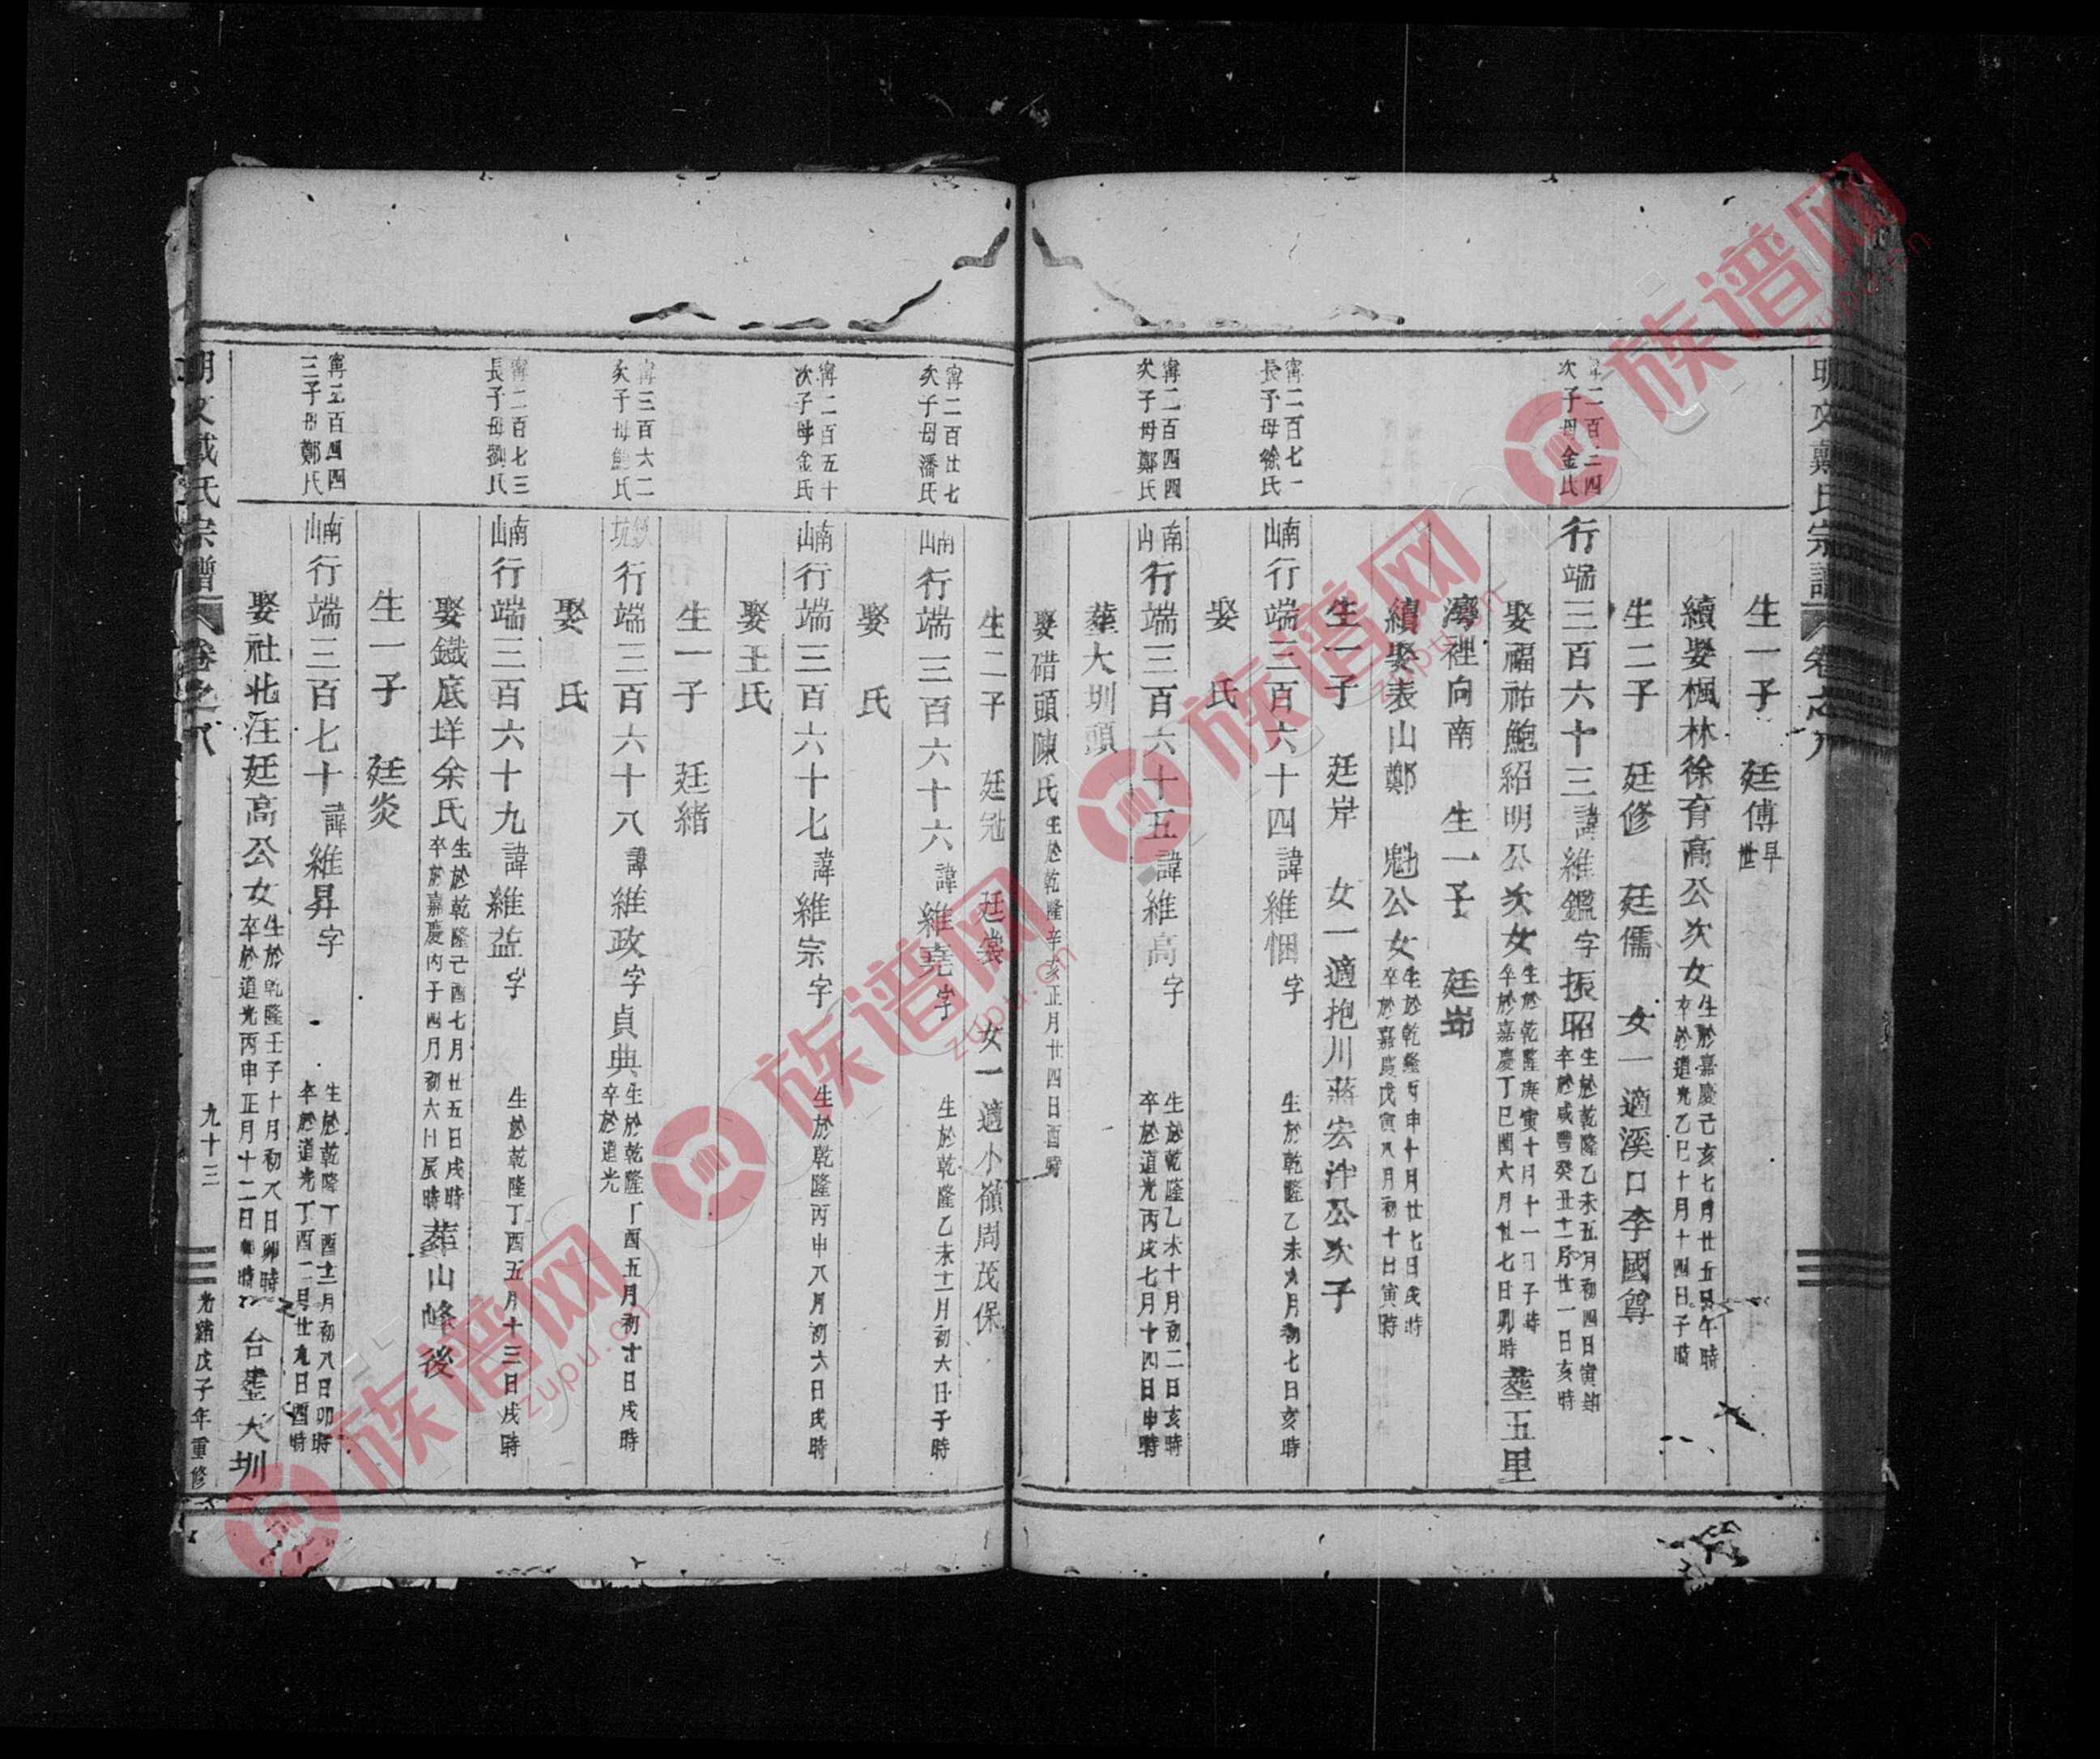 明文戴氏宗譜 卷之八
生一子 廷傅 早世
續娶楓林徐育高公次女 生於嘉慶己亥七月廿五日午時 卒於道光乙巳十月十四日子時
生二子 廷修 廷儒 女一適溪口李國尊
寧二百三四次子母金氏
行端三百六十三諱維鑑字振昭 生於乾隆乙未五月初四日寅時 卒於咸豐癸丑十二月廿一日亥時
娶福祐鮑紹明公次女 生於乾隆庚寅十月十一日子時 卒於嘉慶丁巳閏六月廿七日卯時 塟五里
灣裡向南 生一子 廷岇
續娶表山鄭 魁公女 生於乾隆丙申十月廿七日戌時 卒於嘉慶戊寅八月初十日寅時
生一子 廷岸 女一適抱川蔣宏泮公次子
寧二百七一長子母徐氏
南山行端三百六十四諱維悃字 生於乾隆乙未九月初七日亥時
娶 氏
寧二百四四次子母鄭氏
南山行端三百六十五諱維高字 生於乾隆乙未十月初二日亥時 卒於道光丙戌七月十四日申時
塟大圳頭
娶碏頭陳氏 生於乾隆辛亥正月廿四日酉時
生二子 廷冠 廷裳 女一適小嶺周茂保
寧二百廿七次子母潘氏
南山行端三百六十六諱維堯字 生於乾隆乙未十二月初六日子時
娶 氏
寧二百五十次子母金氏
南山行端三百六十七諱維宗字 生於乾隆丙申八月初六日戌時
娶王氏
生一子 廷緒
寧三百六二次子母鮑氏
坑行端三百六十八諱維政字貞典 生於乾隆丁酉五月初十日戌時 卒於道光
娶 氏
寧二百七三長子母劉氏
南山行端三百六十九諱維益字 生於乾隆丁酉五月十三日戌時
娶鐵底垟余氏 生於乾隆己酉七月廿五日戌時 卒於嘉慶丙子四月初六日辰時 葬山峰後
生一子 廷炎
寧二百四四三子母鄭氏
南山行端三百七十諱維昇字 生於乾隆丁酉十二月初八日卯時 卒於道光丁酉二月廿九日酉時
娶社北汪廷高公女 生於乾隆壬子十月初八日卯時 卒於道光丙申正月十二日時 合塟大圳
明文戴氏宗譜 卷之八 九十三 光緒戊子年重修
族谱网
zupu.cn
族谱网
zupu.cn
族谱网
zupu.cn
族谱网
zupu.cn